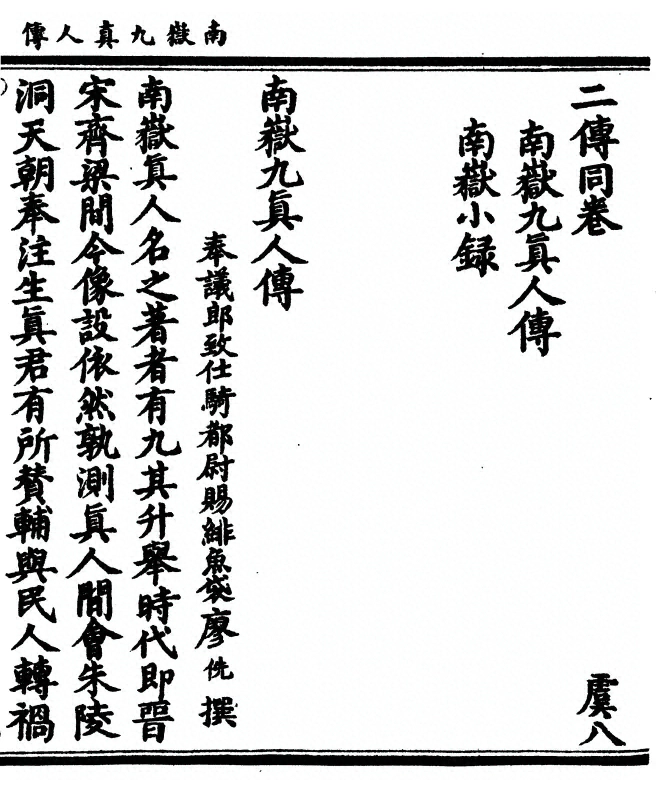 南嶽九真人傳
二傳同卷 虞八
南嶽九眞人傳
南嶽小録
南嶽九眞人傳
奉議郎致仕騎都尉賜緋魚袋廖侁撰
南嶽眞人名之著者有九其升舉時代即晉
宋齊梁間今像設依然孰測眞人間會朱陵
洞天朝奉注生眞君有所賛輔與民人轉禍